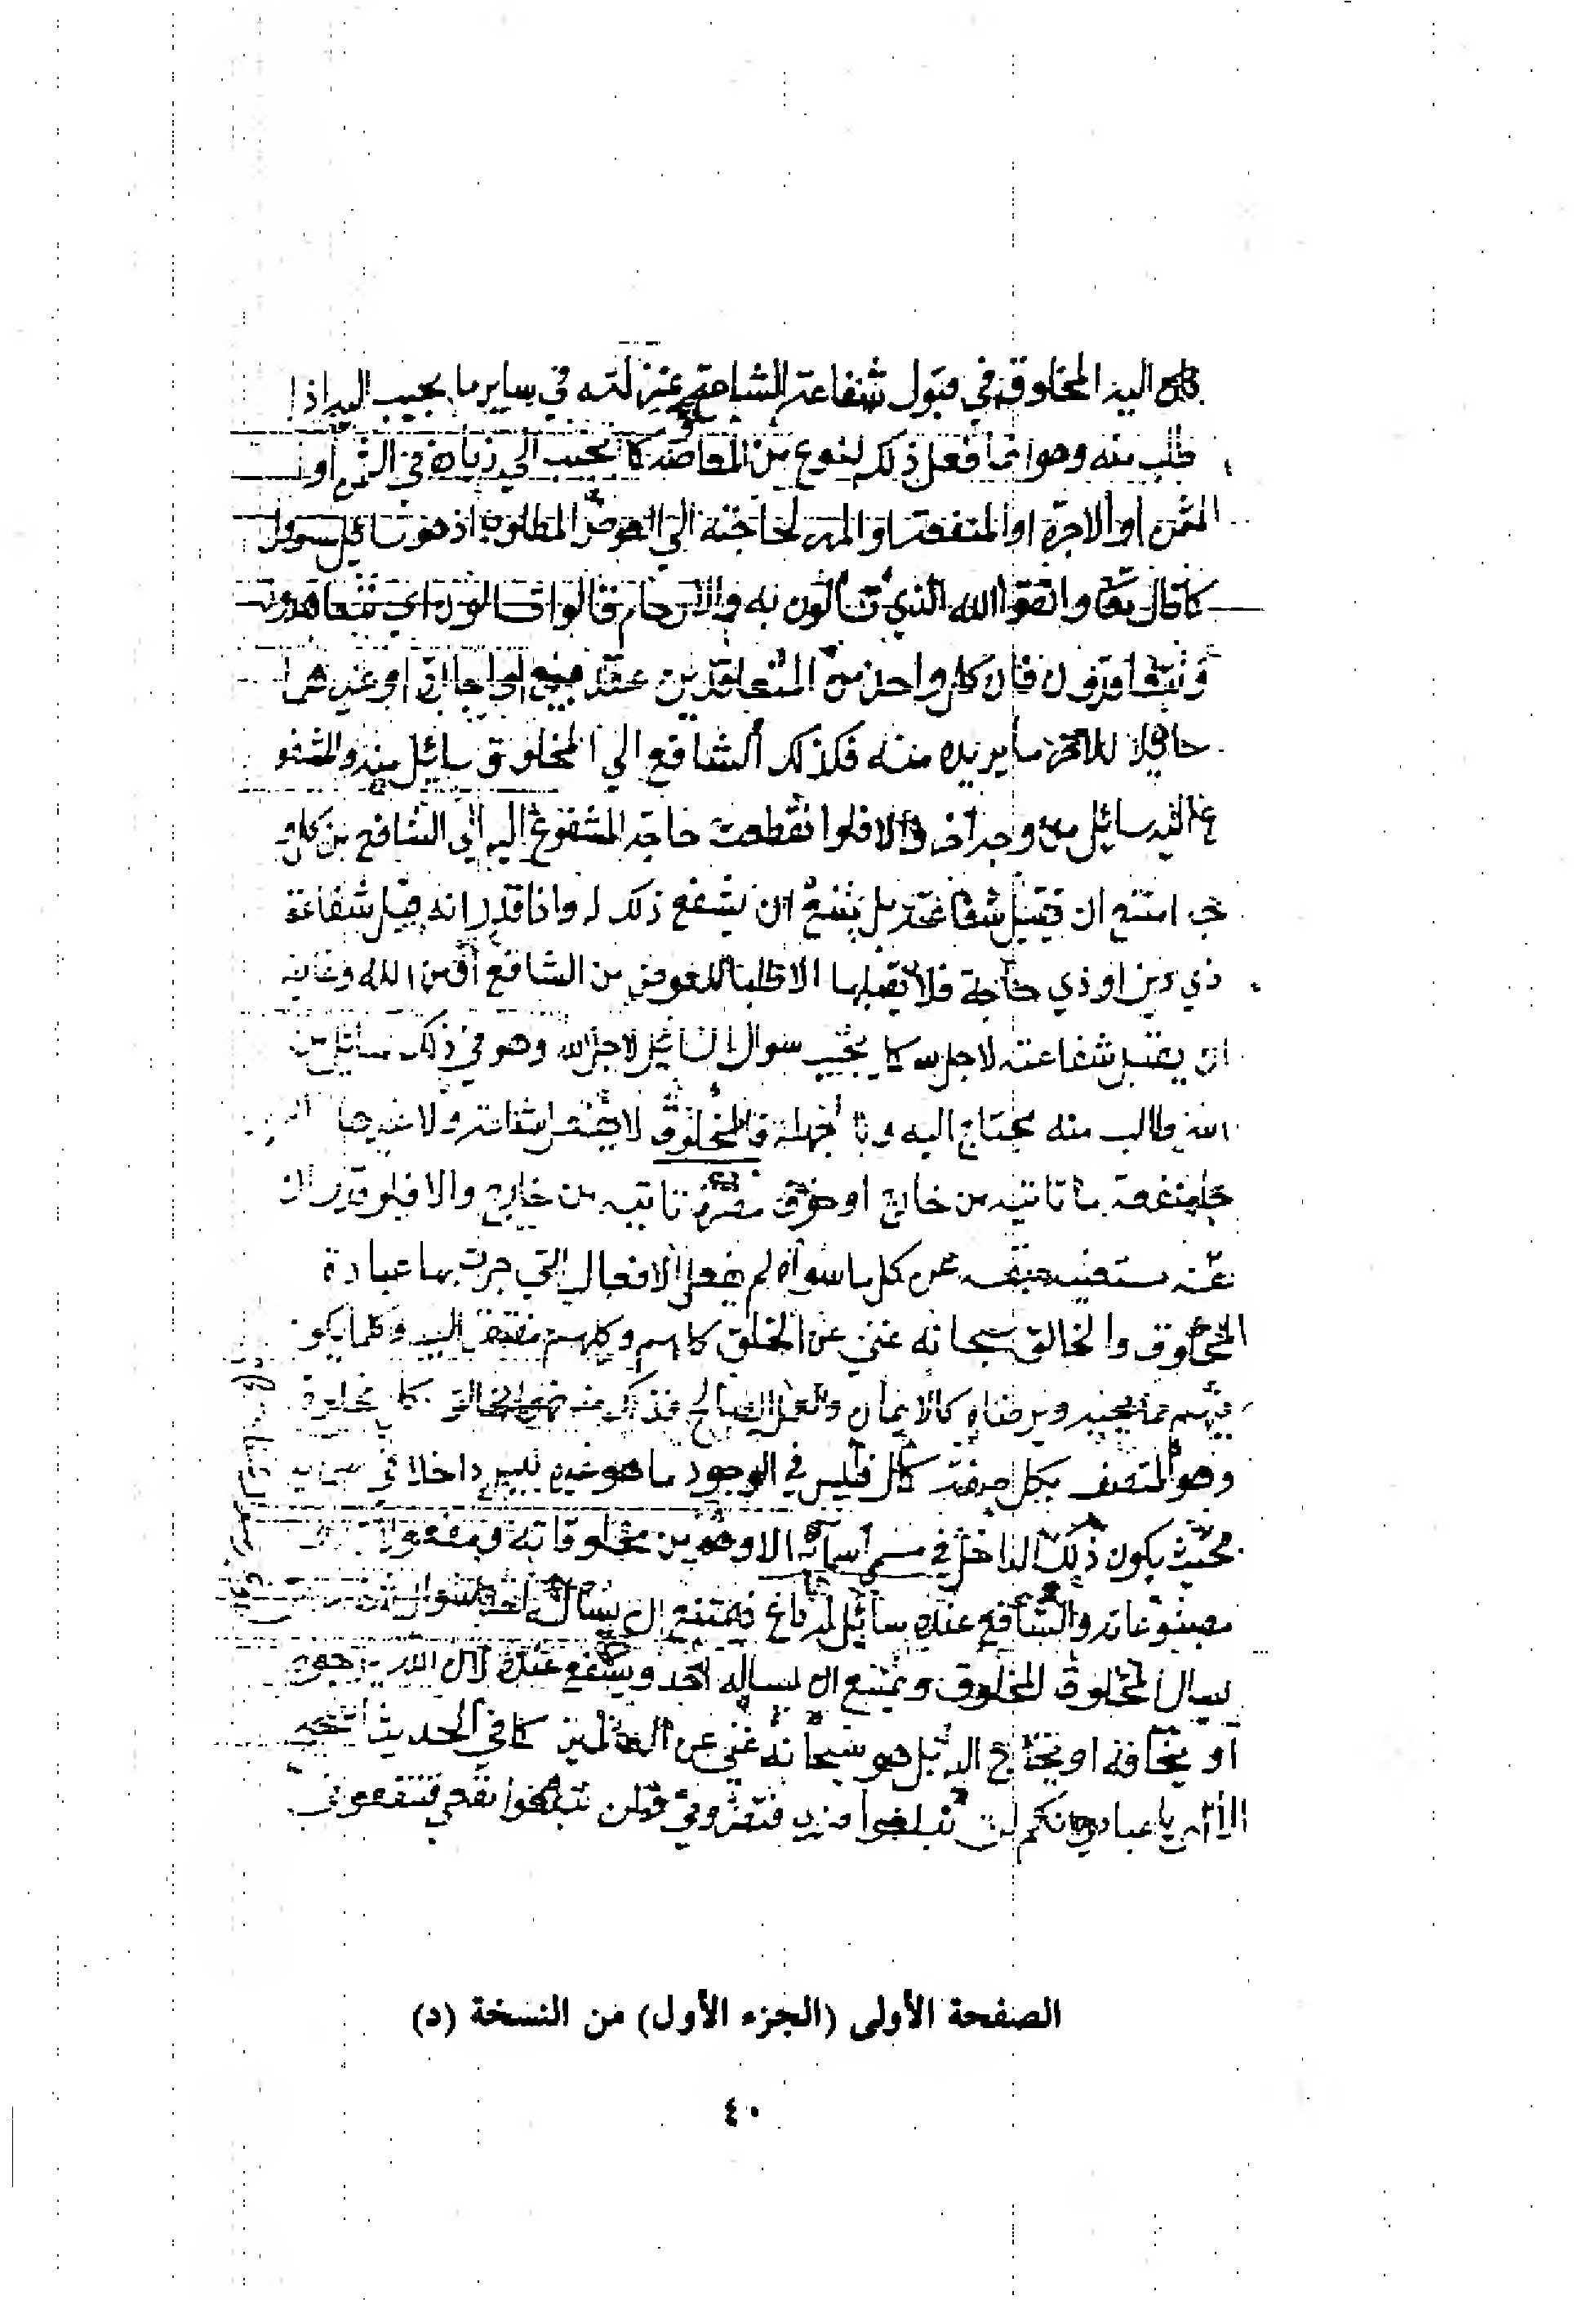 اليه المخلوق في قبول شفاعة الشافع بمنزلته في ساير ما يجيب اليه اذا
طلب منه وهو انما فعل ذلك لنوع من المعاوضه كما يجيب الي في الثمن أو
المثمن او الاجرة او المنفعة او المهر لحاجته الي العوض المطلوب اذ هو سائل
كما قال تعا واتقوا الله الذي تسألون به والارحام قالوا تسالون اي تتعاهدون
وتتعاقدون فان كل واحد من المتعاقدين عقد او غيرهما
للآخر ما يريده منه فكذلك الشافع الي المخلوق سائيل منه والمشفو
ع اليه سائيل من وجه آخر والا فلوا نقطعت حاجة المشفوع اليه الي الشافع من كل و
جه امتنع ان تقبل شفاعته بل يمتنع ان يشفع ذلك له واذا قدر انه يقبل شفاعة
ذي دين او ذي حاجة فلا يقبلها الا طلبا للعوض من الشافع أو من الله وغايته
ان يقبل شفاعته لاجل الله كما يجيب سوال السائيل لاجل الله وهو في ذلك سائيل من
الله طالب منه محتاج اليه وبا لجملة فالمخلوق لا ولا غيرها
منفعة تاتيه من خارج او خوف مضرة تاتيه من خارج والا فلو قدر ان
عن كل ما سواه لم يفعل الافعال التي جرت بها عبادة
المخلوق والخالق سبحانه غني عن الخلق كلهم وكلهم مفتقر اليه وكلما يكو
فيهم مما يحبه ويرضاه كالايمان والعمل الصالح فذلك منه الخالق كل مخلوق
وهو المتصف بكل صفة كمال فليس في الوجود ما هو غيره ليس داخلا في
بحيث يكون ذلك الداخل في مسمى أسمائه الا وهو من مخلوقاته ومفعولاته
مصنوعاته والشافع عنده سائيل له داع فيمتنع ان يسأله احد
يسال المخلوق المخلوق ويمتنع ان يساله احد ويشفع عنده لان الله يرجوه
او يخافه او يحتاج اليه بل هو سبحانه غني عن العالمين كما في الحديث الصحيح
الالهي يا عبادي انكم لن تبلغوا ضري فتضروني ولن تبلغوا نفعي فتنفعوني
الصفحة الأولى (الجزء الأول) من النسخة (د)
٤٠